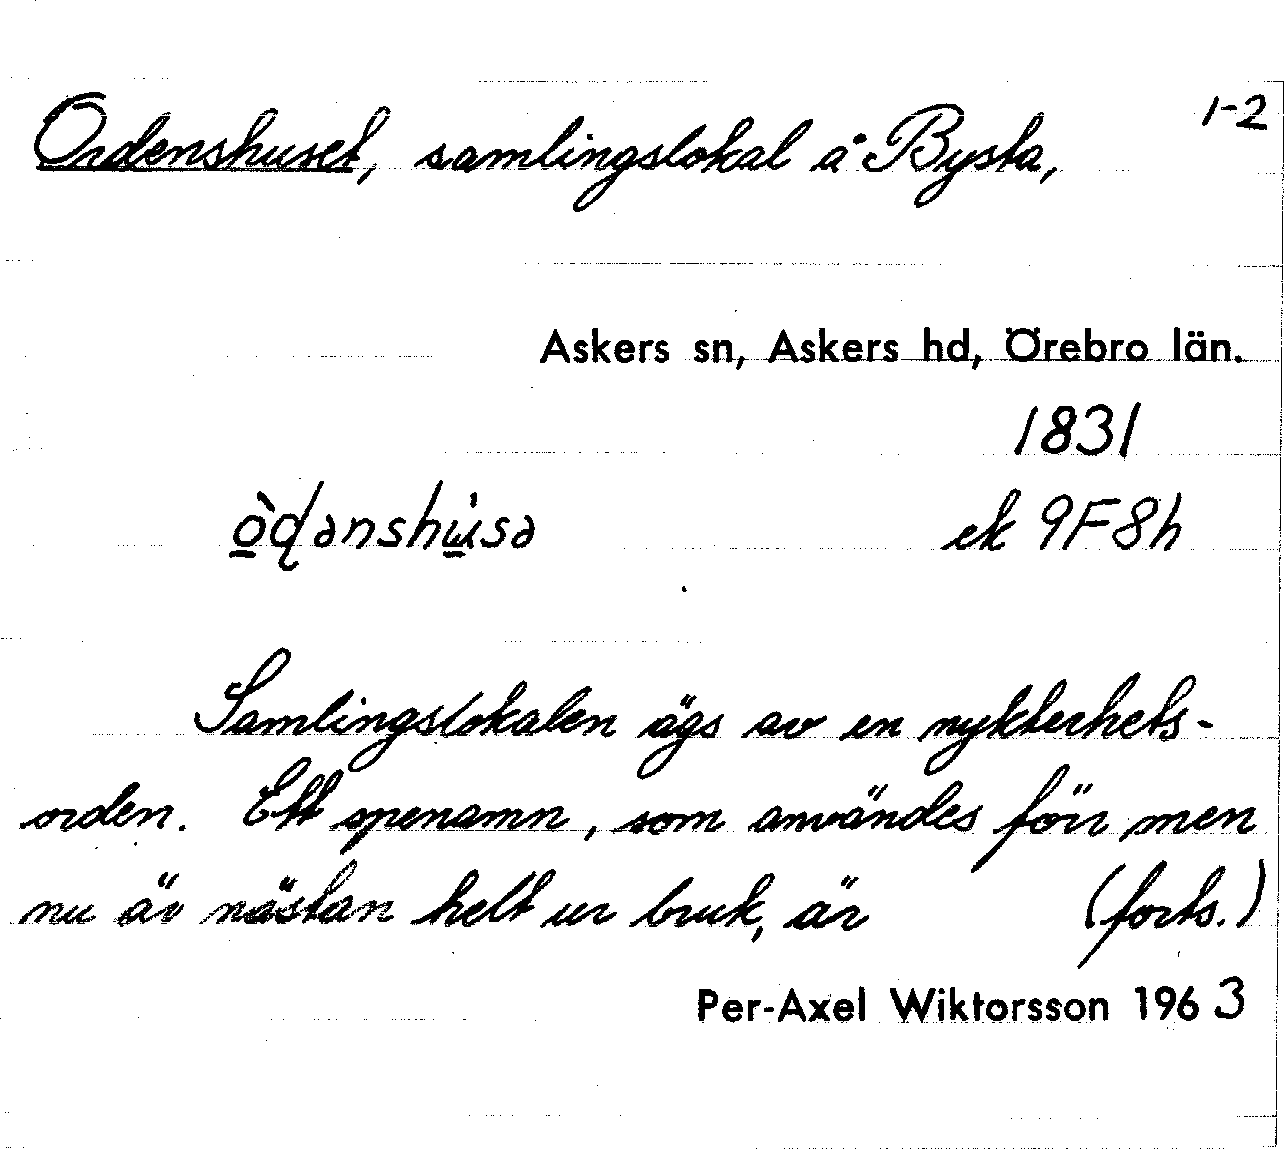 1-2
Ordenshuset, samlingslokal å Bysta,
Askers sn, Askers hd, Örebro län.
1831
ek 9F8h
Samlingslokalen ägs av en nykterhets-
orden. Ett öpenamn, som användes förr men
nu är nästan helt ur bruk, är (forts.)
Per-Axel Wiktorsson 1963